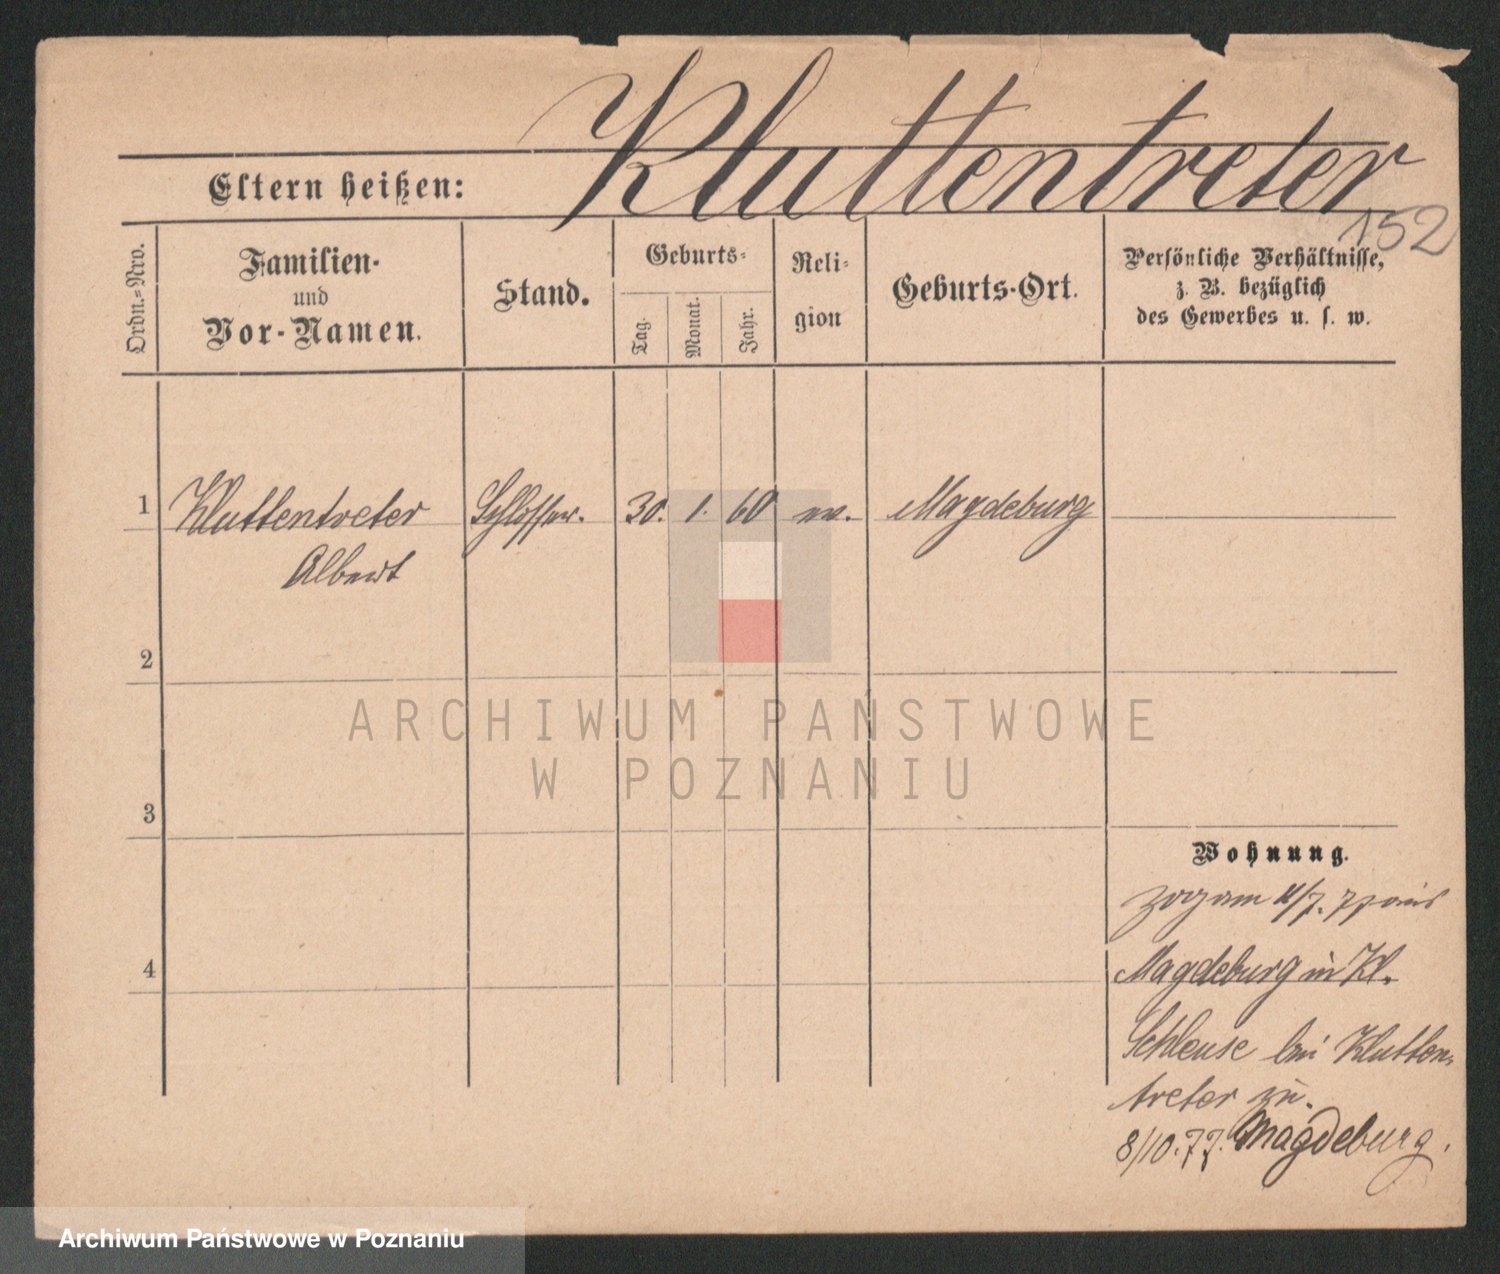 Kluttentreter
Eltern heißen:
152
Ordn.=Nro.
Familien-
und
Vor-Namen.
Stand.
Geburts=
Tag.
Monat.
Jahr.
Reli=
gion
Geburts-Ort.
Persönliche Verhältnisse,
z. B. bezüglich
des Gewerbes u. s. w.
1 Kluttentreter Schlosser. 30. 1. 60 ev. Magdeburg
Albert
2
ARCHIWUM PAŃSTWOWE
W POZNANIU
3
Wohnung.
zog am 11/7. 77 aus
4
Magdeburg in Kl.
Schleuse bei Klutten=
treter zu.
8/10.77. Magdeburg.
Archiwum Państwowe w Poznaniu